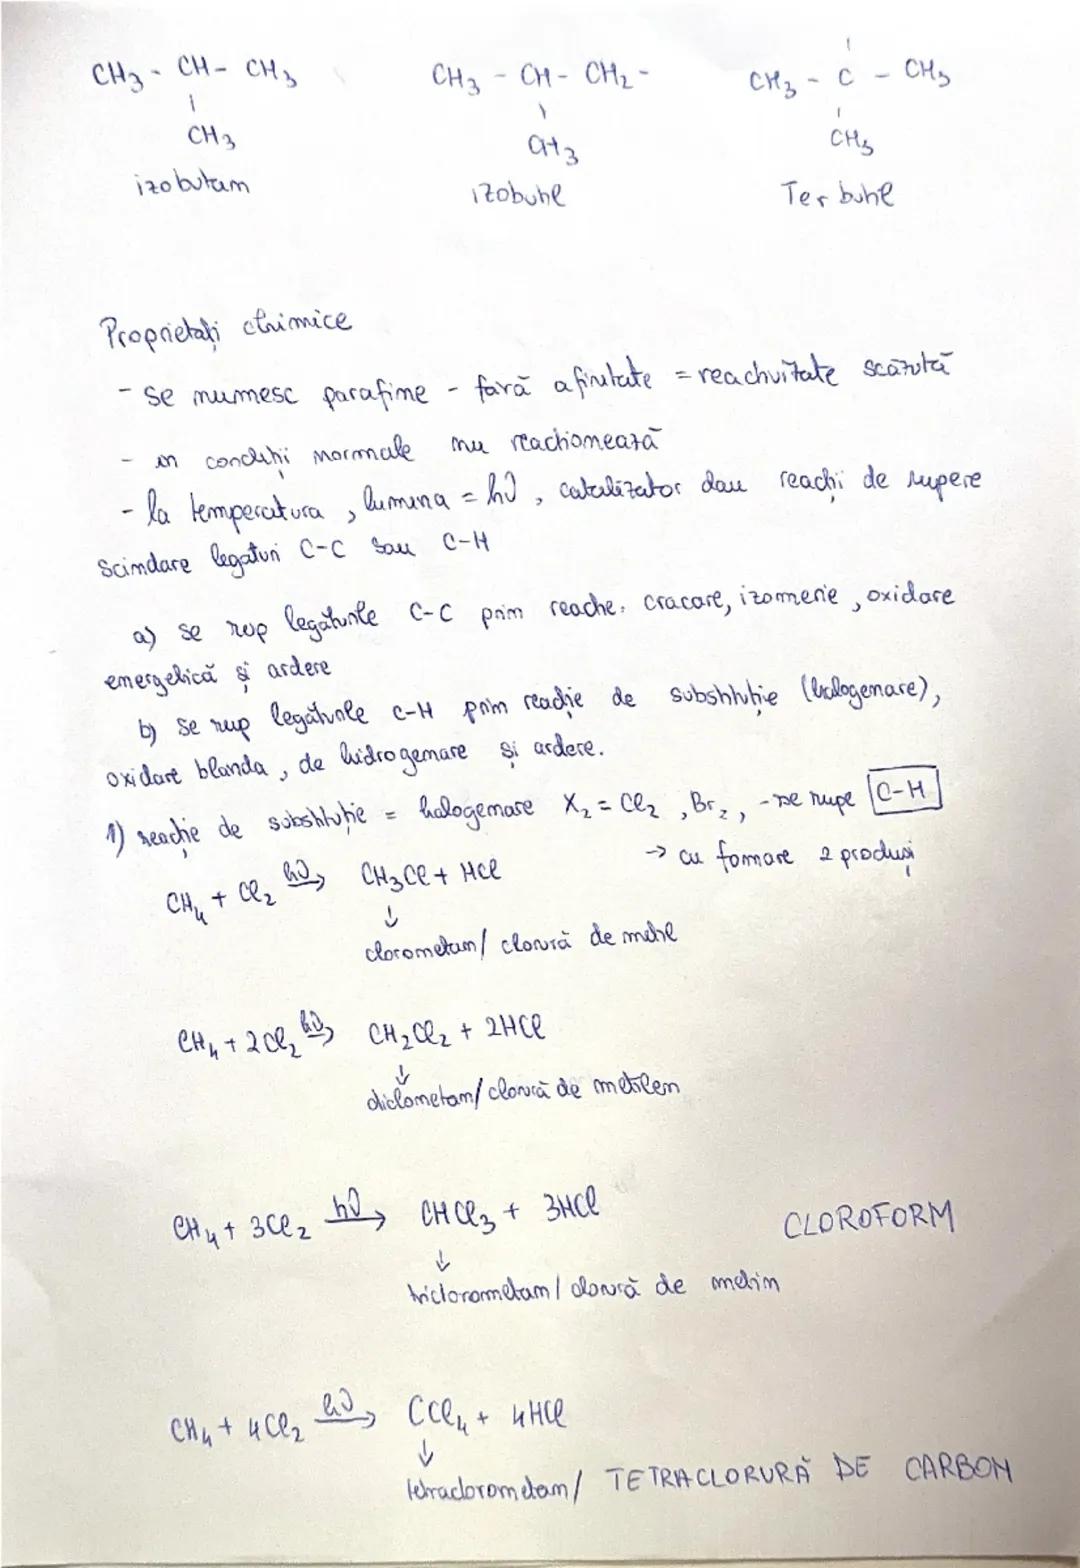 CH3 - CH - CH3    CH3 - CH - CH2 -    CH3 - C - CH3
CH3    CH3    CH3
izobutan    izobutil    Ter butil
Proprietăți chimice
- se numesc parafine - fară afinitate = reactivitate scăzută
- in condiții normale nu reactionează
- la temperatura, lumina = hν, catalizator dau reacții de rupere
scindare legaturi C-C sau C-H
a) se rup legăturile C-C prin reactie. cracare, izomerie, oxidare
energetică și ardere
b) se rup legăturile C-H prin reacție de substituție (halogenare),
oxidare blanda, de hidrogenare și ardere.
1) reacție de substituție = halogenare X2 = Cl2, Br2, - se rupe C-H
→ cu formare 2 produși
CH4 + Cl2 hν→ CH3Cl + HCl
↓
clorometan/ clorură de metil
CH4 + 2Cl2 hν→ CH2Cl2 + 2HCl
↓
diclometan/ clorură de metilen
CH4 + 3Cl2 hν→ CHCl3 + 3HCl    CLOROFORM
↓
triclorometan/ clorură de metin
CH4 + 4Cl2 hν→ CCl4 + 4HCl
↓
tetraclorometan/ TETRACLORURĂ DE CARBON